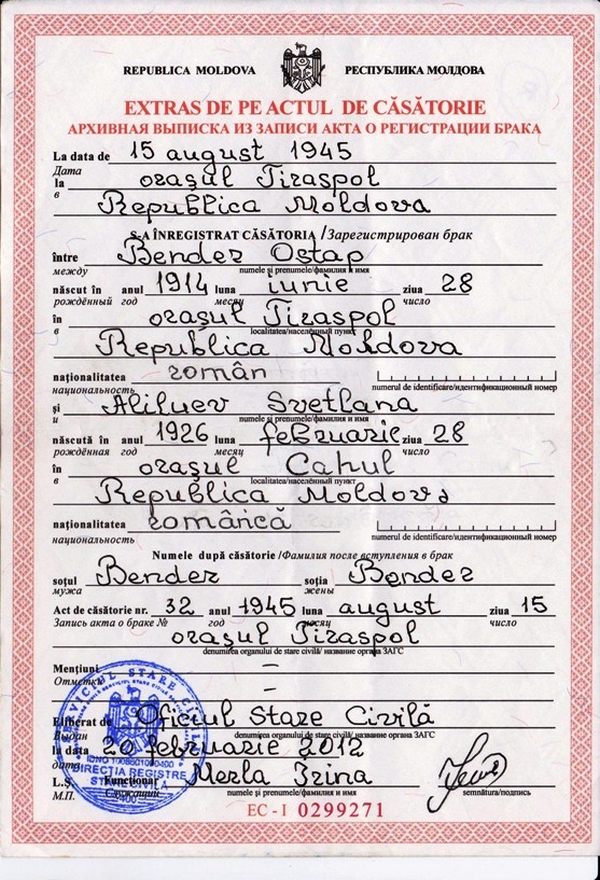 REPUBLICA MOLDOVA РЕСПУБЛИКА МОЛДОВА
EXTRAS DE PE ACTUL DE CĂSĂTORIE
АРХИВНАЯ ВЫПИСКА ИЗ ЗАПИСИ АКТА О РЕГИСТРАЦИИ БРАКА
La data de 15 august 1945
Дата
la orașul Tiraspol
в
Republica Moldova
S-A ÎNREGISTRAT CĂSĂTORIA / Зарегистрирован брак
între Bender Ostap
между numele și prenumele/фамилия и имя
născut în anul 1914 luna iunie ziua 28
рождённый год месяц число
în orașul Tiraspol
в localitatea/населённый пункт
Republica Moldova
naționalitatea român
национальность numerul de identificare/идентификационный номер
și Aliluev Svetlana
и numele și prenumele/фамилия и имя
născută în anul 1926 luna februarie ziua 28
рождённая год месяц число
în orașul Cahul
в localitatea/населённый пункт
Republica Moldova
naționalitatea româncă
национальность numerul de identificare/идентификационный номер
Numele după căsătorie /Фамилия после вступления в брак
soțul Bender soția Bender
мужа жены
Act de căsătorie nr. 32 anul 1945 luna august ziua 15
Запись акта о браке № год месяц число
orașul Tiraspol
denumirea organului de stare civilă/ название органа ЗАГС
Mențiuni –
Отметки
–
Eliberat de Oficiul Stare Civilă
Выдан denumirea organului de stare civilă/ название органа ЗАГС
la data 20 februarie 2012
дата
L.Ș. Funcționar Merla Irina
М.П. Служащий numele și prenumele/фамилия и имя semnătura/подпись
EC-I 0299271
SERVICIUL STARE CIVILĂ
DIRECȚIA REGISTRE
STARE CIVILĂ
400